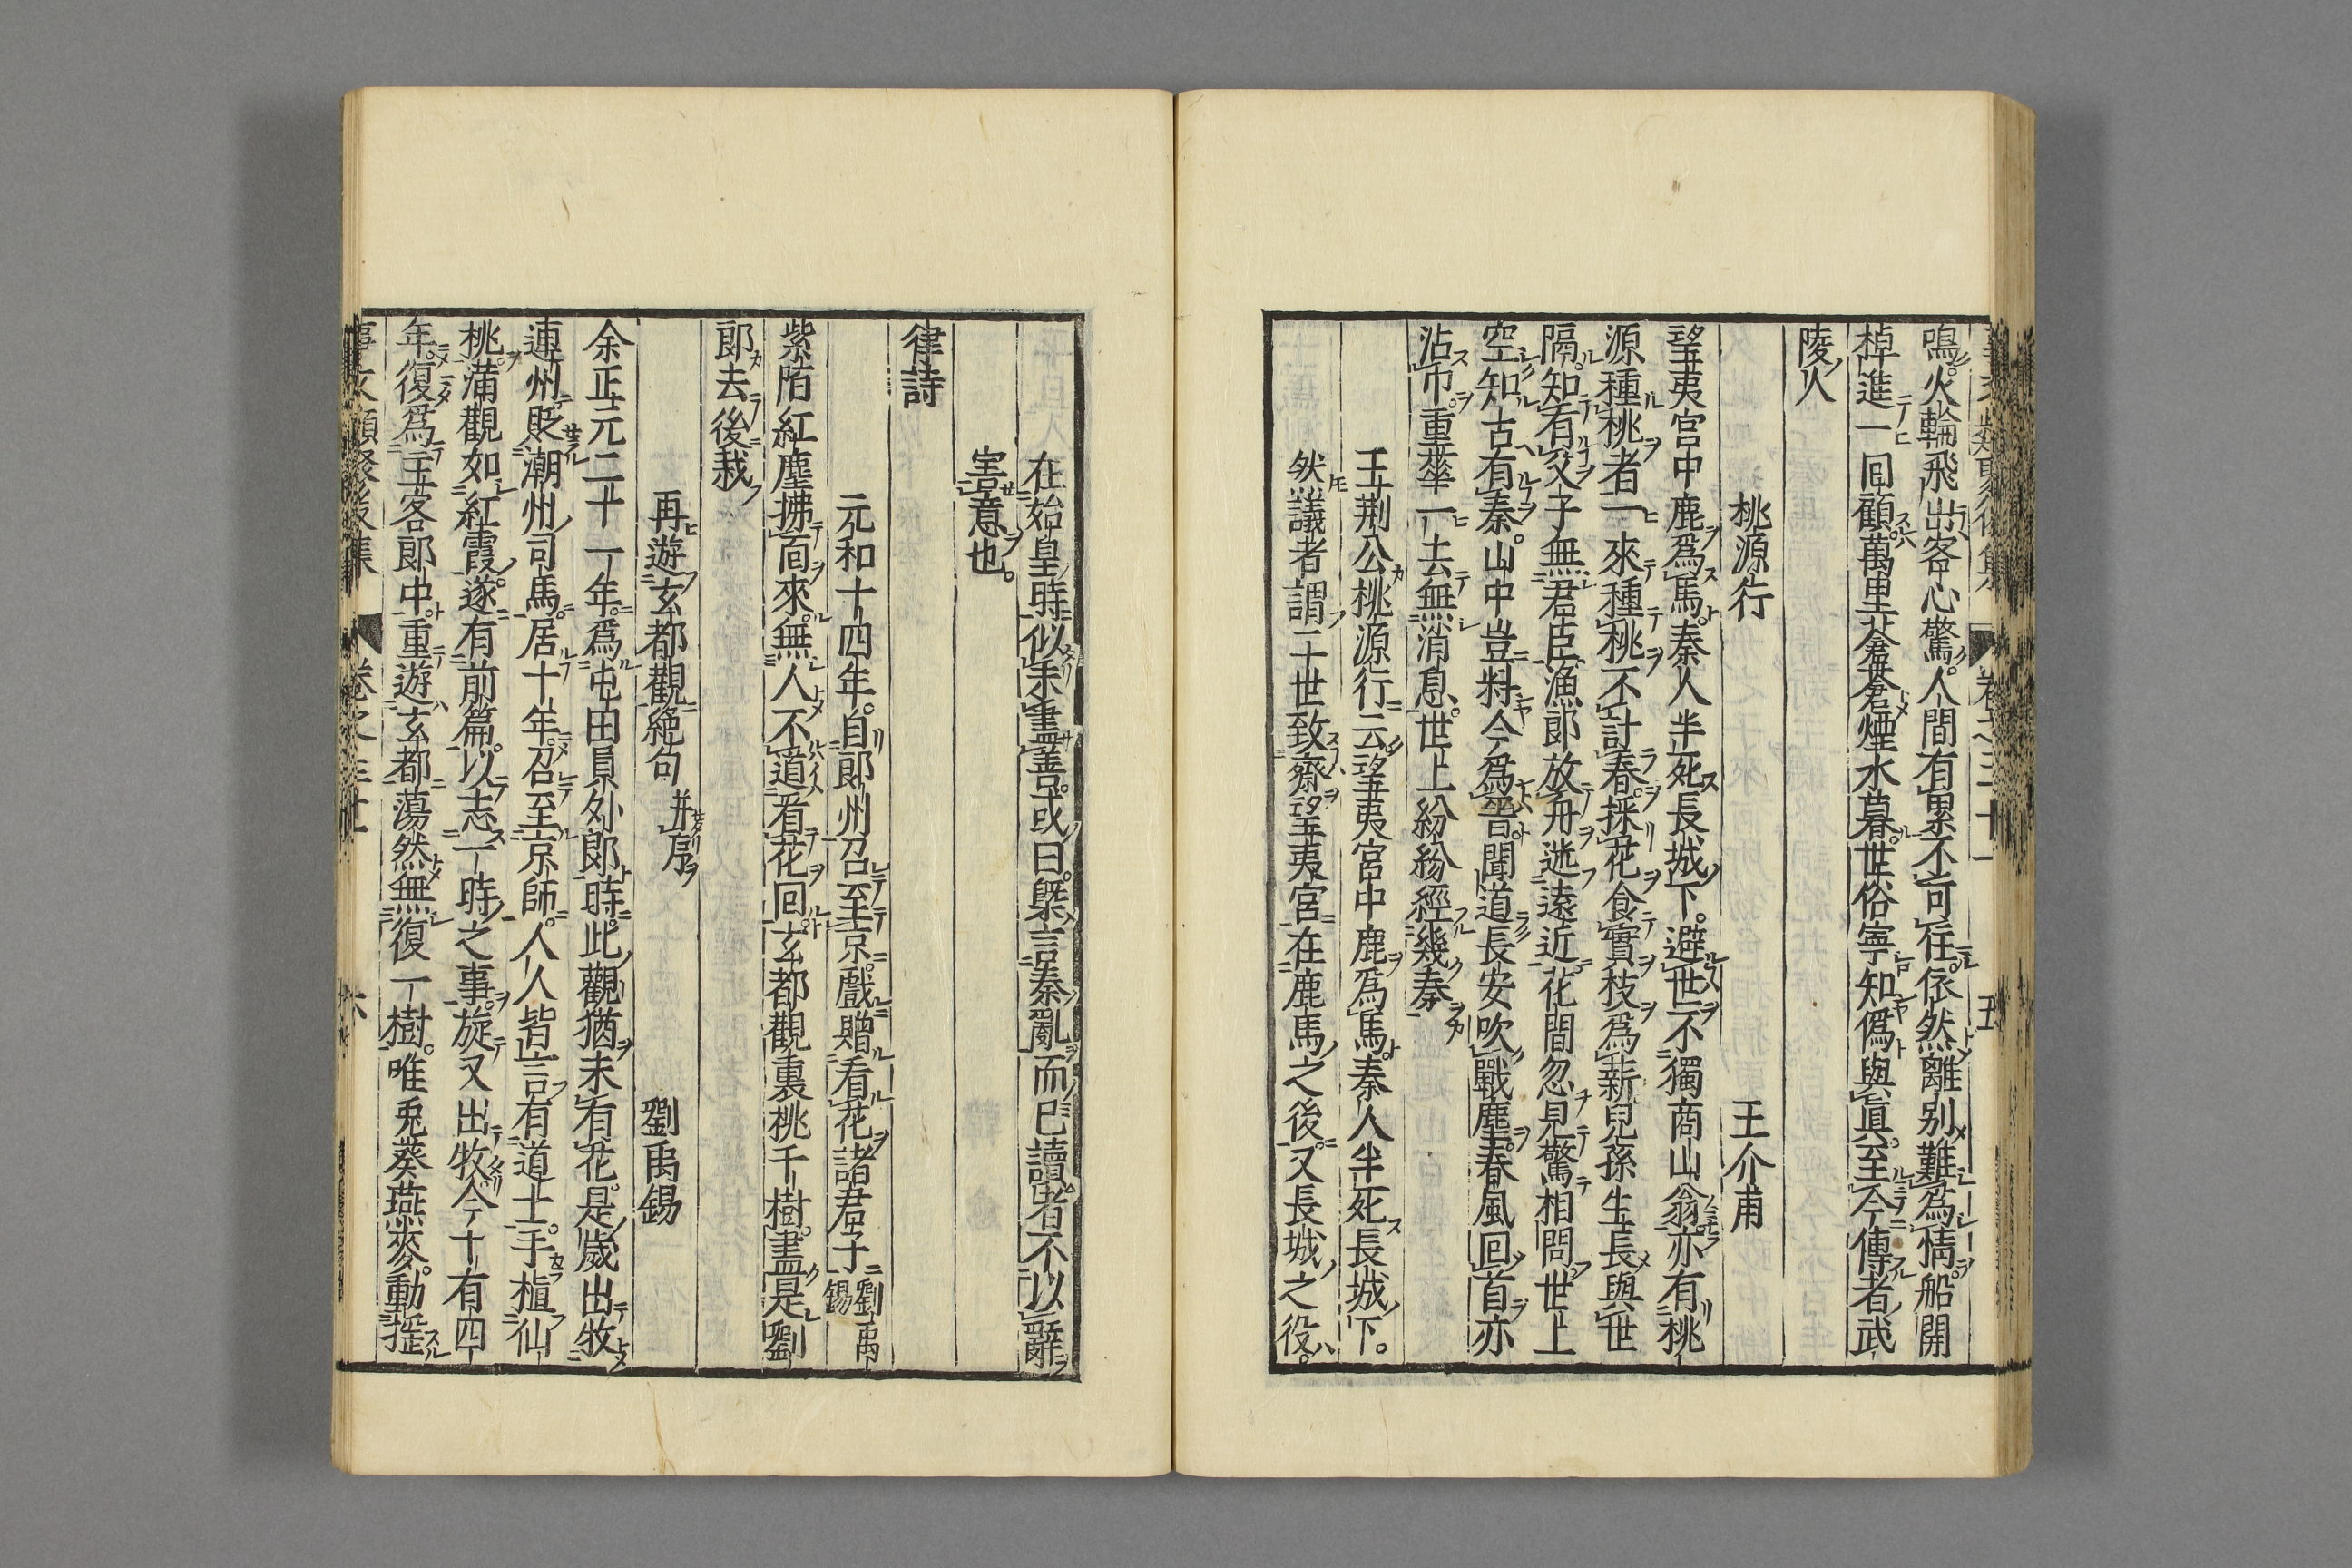 鳴。火輪飛出客心驚。人間有累不可住。依然離別難爲情。船開
棹進一回顧。萬里蒼蒼煙水暮。世俗寧知僞與眞。至今傳者武
陵人
桃源行　王介甫
望夷宮中鹿爲馬。秦人半死長城下。避世不獨商山翁亦有桃
源種桃者一來種桃不計春。採花食實枝爲薪兒孫生長與世
隔。知有父子無君臣漁郎放舟迷遠近花間忽見驚相問世上
空知古有秦。山中豈料今爲晉。聞道長安吹戰塵。春風回首亦
沾巾。重華一去無消息。世上紛紛經幾秦
王荆公桃源行云望夷宮中鹿爲馬秦人半死長城下。
然議者謂二世致齋望夷宮在鹿馬之後。又長城之役。
在始皇時似未盡善。或曰。槩言秦亂而已讀者不以辭
害意也。
律詩
元和十四年。自郎州召至京。戲贈看花諸君子　劉禹錫
紫陌紅塵拂面來。無人不道看花回。玄都觀裏桃千樹。盡是劉
郎去後栽
再遊玄都觀絶句　并序　劉禹錫
余正元二十一年。爲屯田員外郎時。此觀猶未有花。是歲出牧
連州貶潮州司馬。居十年。召至京師。人人皆言有道士。手植仙
桃。滿觀如紅霞。遂有前篇。以志一時之事。旋又出牧今十有四
年。復爲主客郎中。重遊玄都蕩然無復一樹。唯兎葵燕麥。動揺
事文類聚後集　卷之三十一　六